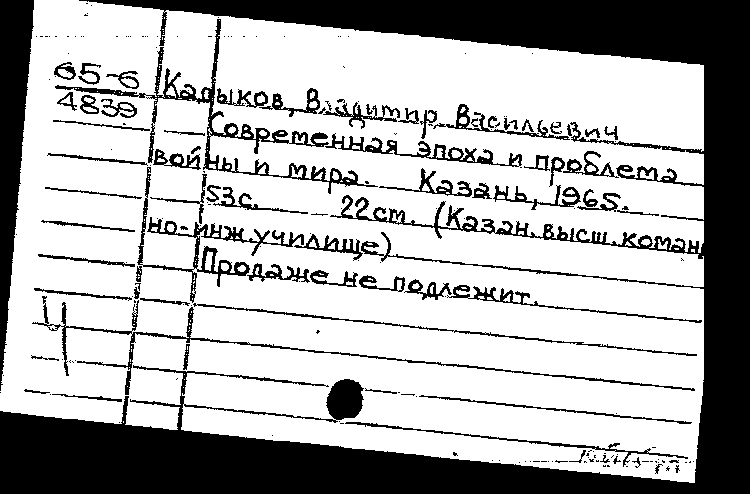 65-6
4839
Кадыков, Владимир Васильевич
Современная эпоха и проблема
войны и мира. Казань, 1965.
53с. 22см. (Казан. высш. коман
но-инж. училище).
Продаже не подлежит.
Ч